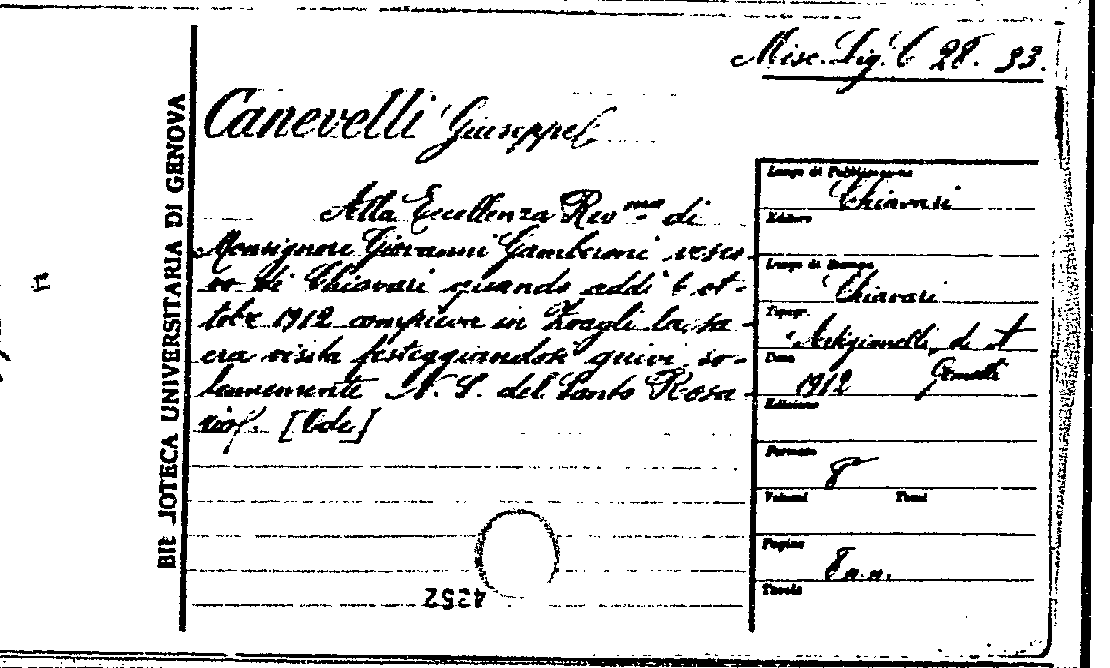 Misc. Lig. C 28. 33.
BIBLIOTECA UNIVERSITARIA DI GENOVA
Canevelli Giuseppe
Alla Eccellenza Rev.ma di
Monsignore Giovanni Gamberoni vesco-
vo di Chiavari quando addì 6 ot-
tobre 1912 compieva in Zoagli la sa-
cra visita festeggiandosi quivi so-
lennemente N. S. del Santo Rosa-
rio. [Ode]
4252
Luogo di Pubblicazione
Chiavari
Editore
Luogo di Stampa
Chiavari
Tipogr.
Artigianelli, di A
Data
1912 Gemelli
Edizione
Formato
8°
Volumi Tomi
Pagine
8 n.n.
Tavole